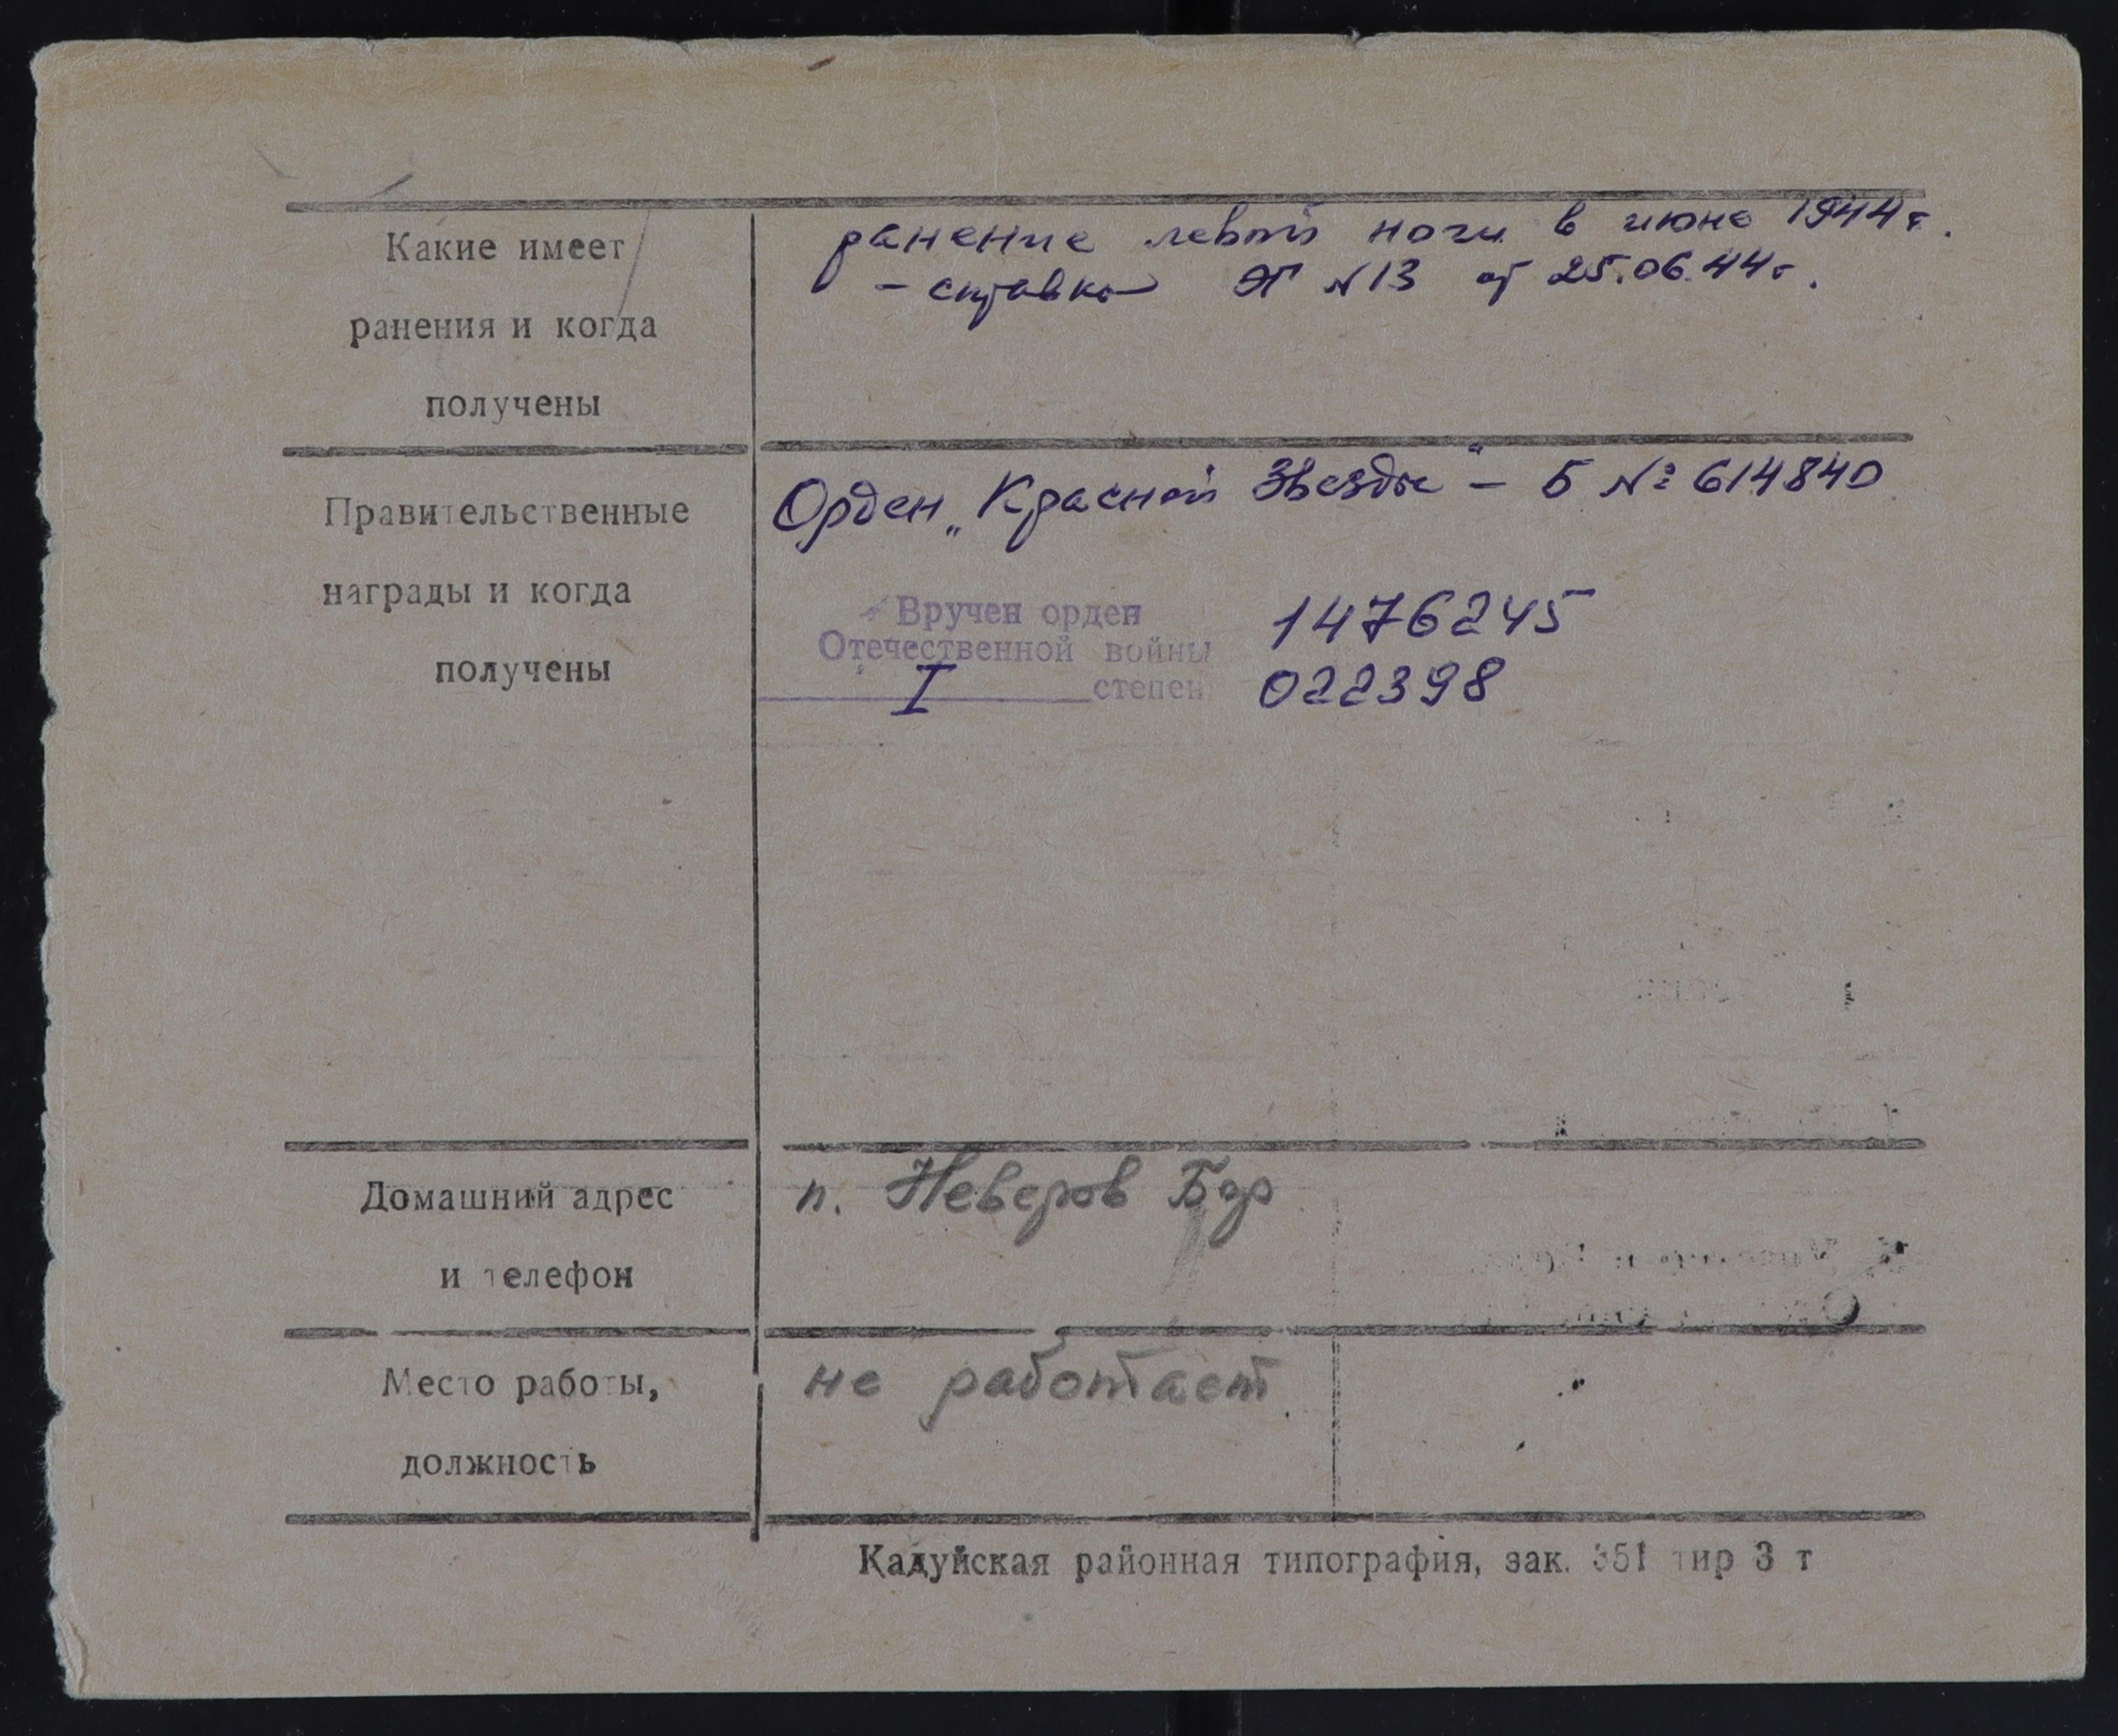 Какие имеет
ранения и когда
получены
ранение левой ноги в июне 1944г.
- справка ЭГ №13 от 25.06.44г.
Правительственные
награды и когда
получены
Орден „Красной Звезды" - Б №: 614840
Вручен орден
Отечественной войны
I степен
1476245
022398
Домашний адрес
и телефон
п. Неверов Бор
Место работы,
должность
не работает
Кадуйская районная типография, зак. 351 тир 3 т